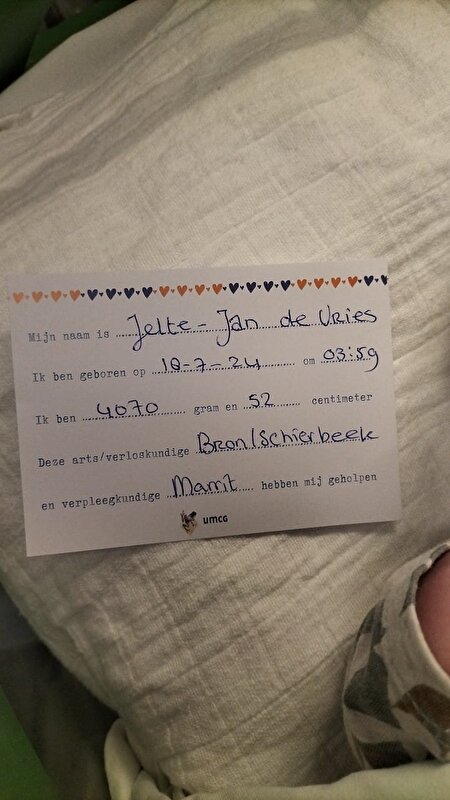 Mijn naam is Jelte-Jan de Vries
Ik ben geboren op 18-7-24 om 03:59
Ik ben 4070 gram en 52 centimeter
Deze arts/verloskundige Bron/Schierbeek
en verpleegkundige Marrit hebben mij geholpen
umcg